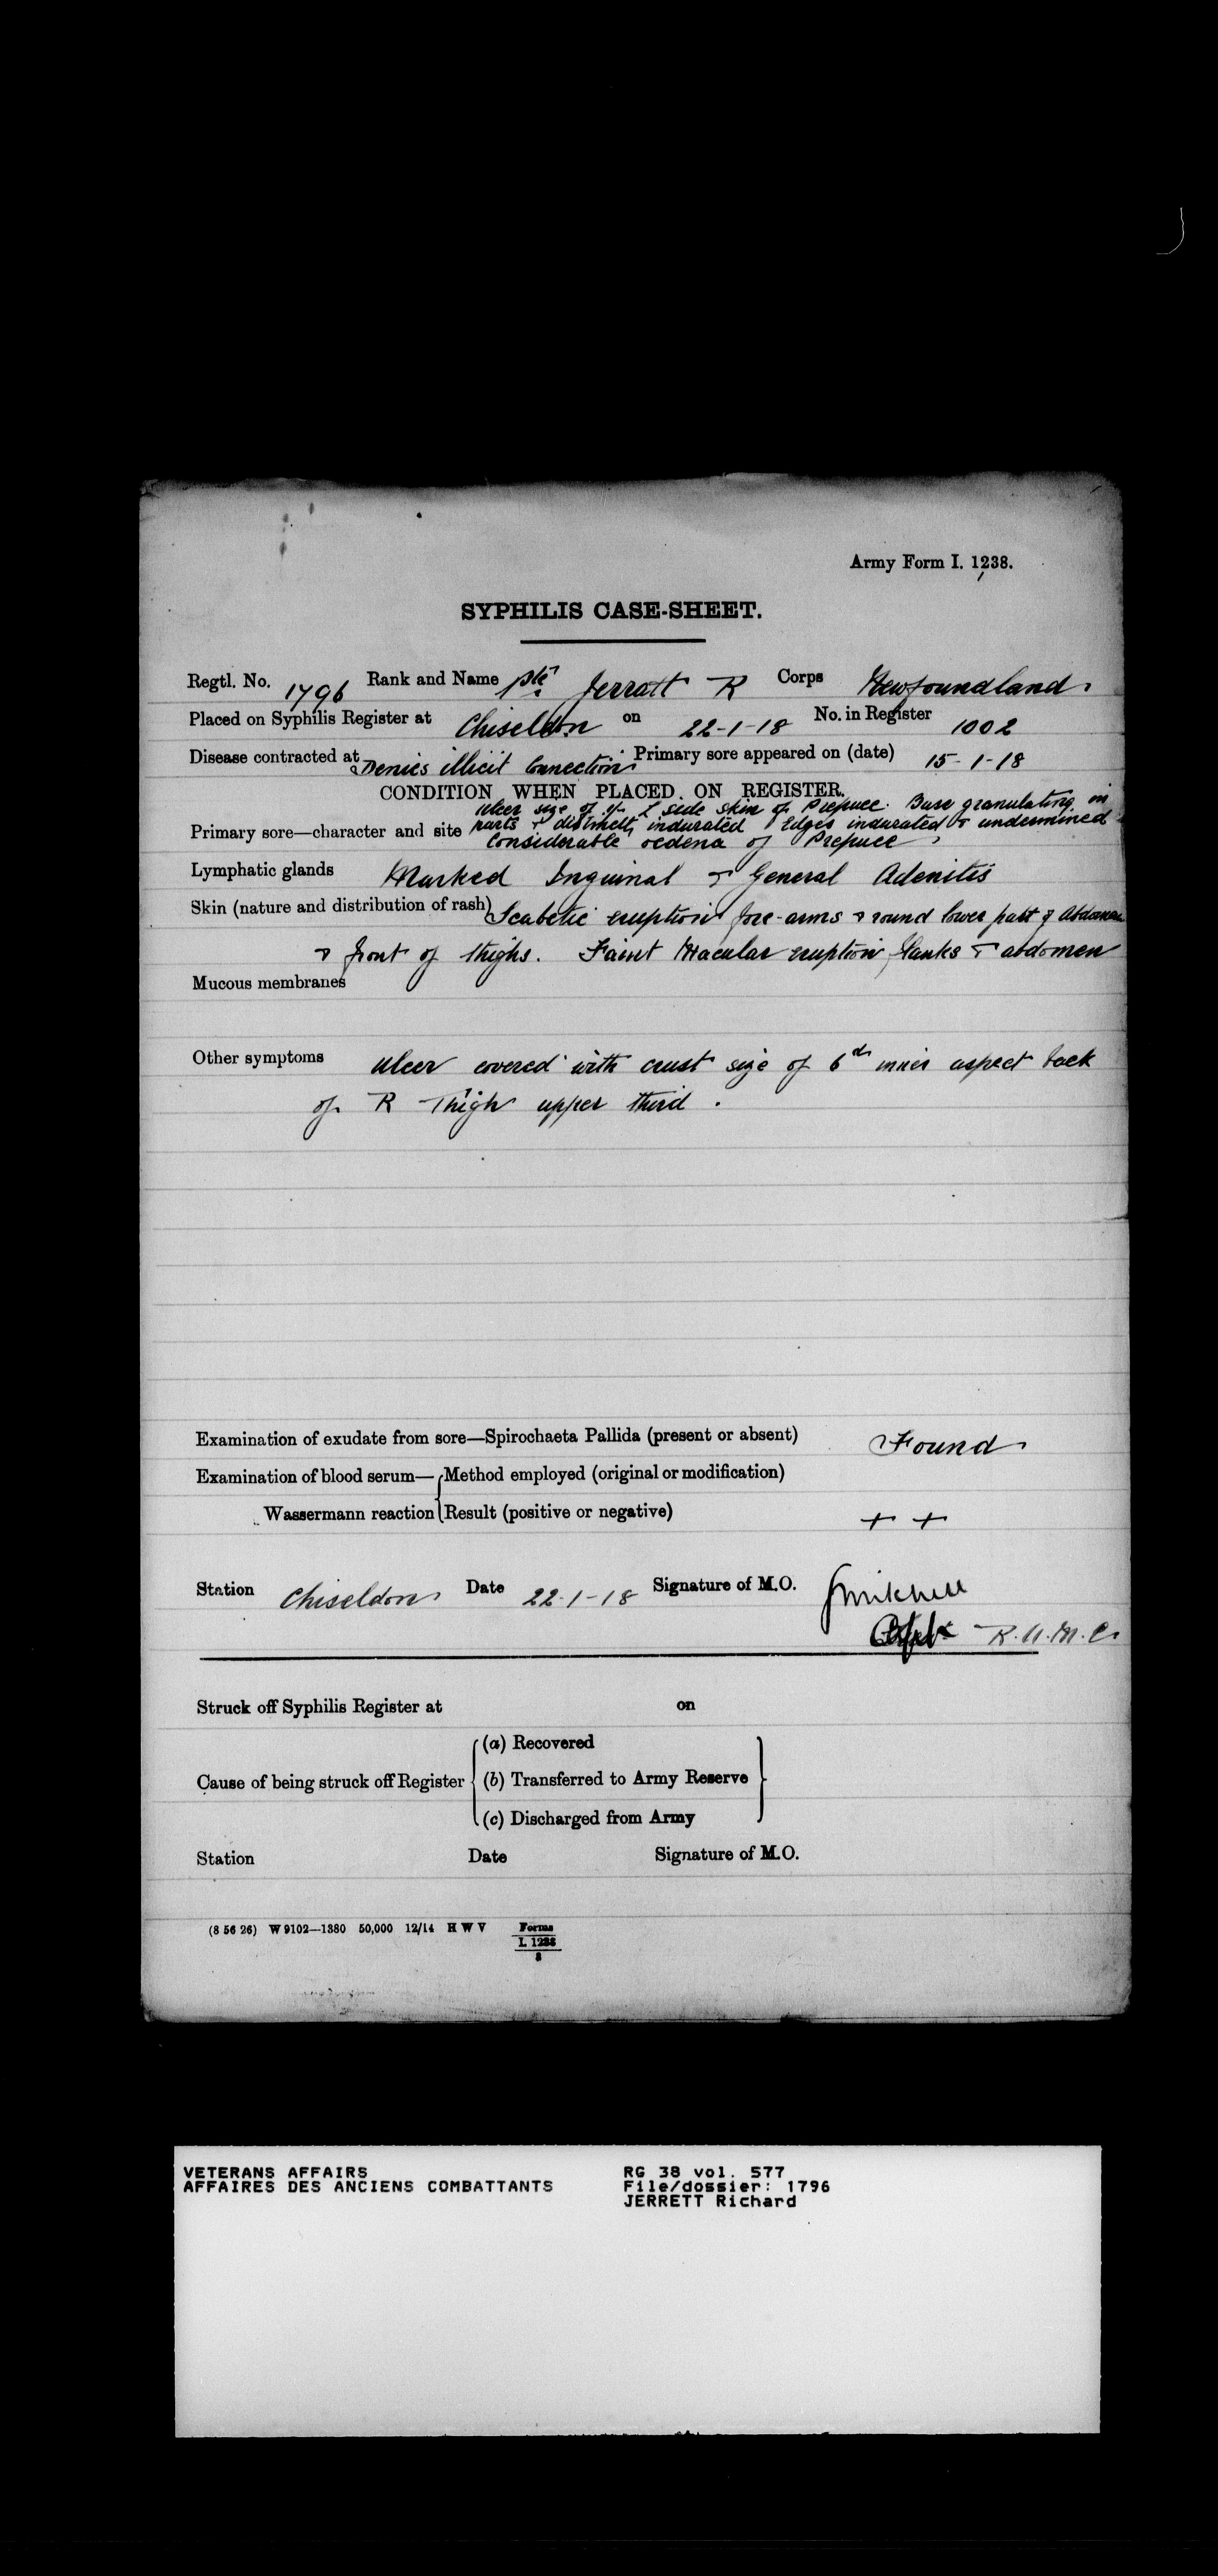 Army Form I. 1238.
SYPHILIS CASE-SHEET.
Regtl. No. 1796 Rank and Name Pte. Jerratt R Corps Newfoundland
Placed on Syphilis Register at Chiseldon on 22-1-18 No. in Register 1002
Disease contracted at Denies illicit Connection Primary sore appeared on (date) 15-1-18
CONDITION WHEN PLACED ON REGISTER.
Ulcer size of L side skin of Prepuce. Base granulating in
Primary sore—character and site parts & distinctly indurated Edges indurated & undermined
Considerable oedena of Prepuce
Lymphatic glands Marked Inguinal & General Adenitis
Skin (nature and distribution of rash) Scabetic eruption fore-arms & round lower part of Abdomen
& front of thighs. Faint Macular eruption flanks & abdomen
Mucous membranes
Other symptoms Ulcer covered with crust size of 6d inner aspect back
of R Thigh upper third.
Examination of exudate from sore—Spirochaeta Pallida (present or absent) Found
Examination of blood serum— Method employed (original or modification)
Wassermann reaction Result (positive or negative) + +
Station Chiseldon Date 22-1-18 Signature of M.O. JMitchell
Capt R.A.M.C.
Struck off Syphilis Register at on
(a) Recovered
Cause of being struck off Register (b) Transferred to Army Reserve
(c) Discharged from Army
Station Date Signature of M.O.
(8 56 26) W 9102—1380 50,000 12/14 H W V Forms
I. 1238
8
VETERANS AFFAIRS RG 38 vol. 577
AFFAIRES DES ANCIENS COMBATTANTS File/dossier: 1796
JERRETT Richard